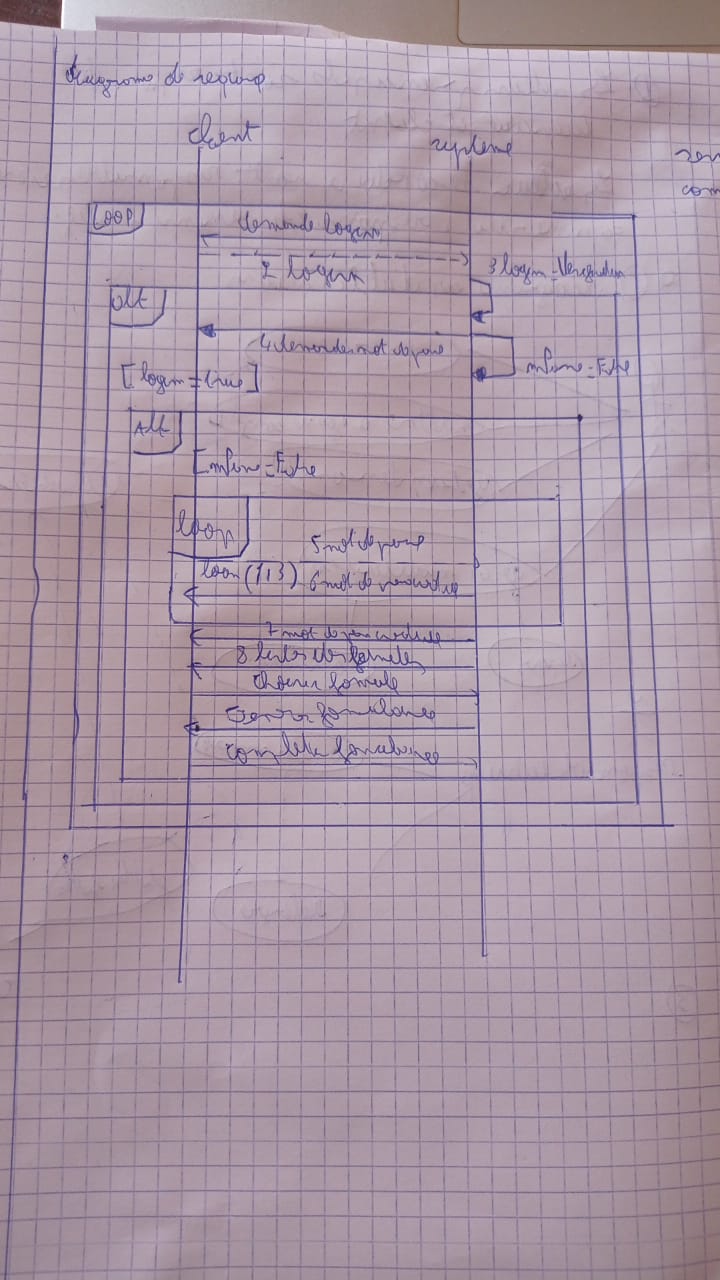 diagrame de sequence
client systeme
LOOP
demande login
2 login
3 login = Verification
alt
4 demandes mot de passe
[login = true]
Alt
[
loop
5 mot de passe
loop (1,3) 6 mot de passe
7 mot de passe
8 listes des formules
choisir formule
formulaire
complete formulaire